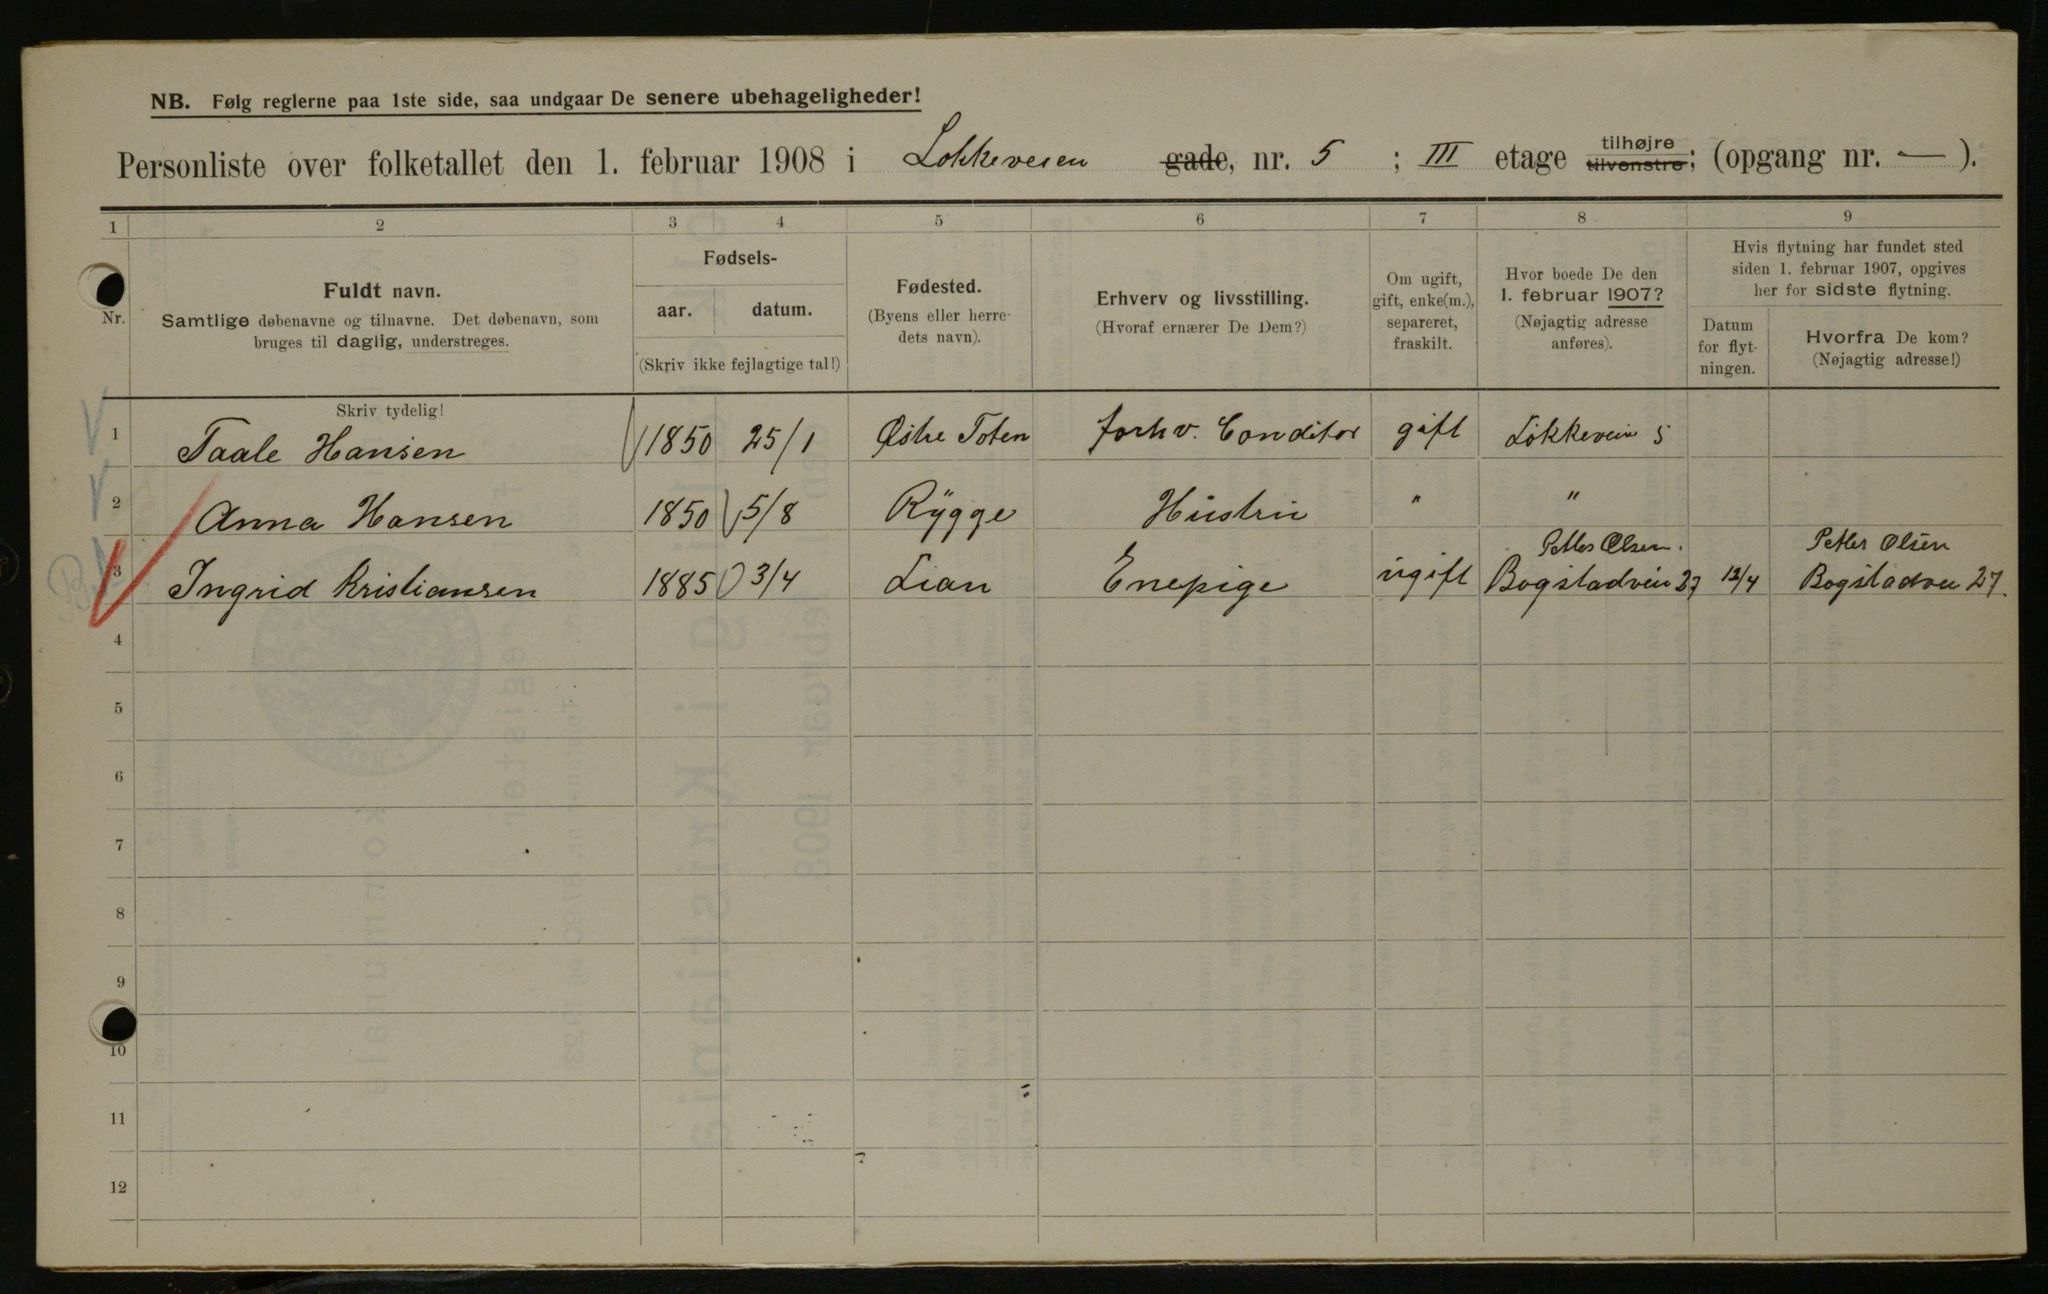 NB. Følg reglerne paa 1ste side, saa undgaar De senere ubehageligheder!
Personliste over folketallet den 1. februar 1908 i Løkkeveien gade, nr. 5 ; III etage tilhøjre tilvenstre; (opgang nr. — ).
1 2 3 4 5 6 7 8 9
Nr.
Fuldt navn.
Samtlige døbenavne og tilnavne. Det døbenavn, som
bruges til daglig, understreges.
Fødsels-
aar. datum.
(Skriv ikke fejlagtige tal!)
Fødested.
(Byens eller herre-
dets navn).
Erhverv og livsstilling.
(Hvoraf ernærer De Dem?)
Om ugift,
gift, enke(m.),
separeret,
fraskilt.
Hvor boede De den
1. februar 1907?
(Nøjagtig adresse
anføres).
Hvis flytning har fundet sted
siden 1. februar 1907, opgives
her for sidste flytning.
Datum
for flyt-
ningen.
Hvorfra De kom?
(Nøjagtig adresse!)
Skriv tydelig!
1 Taale Hansen 1850 25/1 Østre Toten forhv. Conditor gift Løkkevein 5
2 Anna Hansen 1850 5/8 Rygge Hustru " "
Petter Olsen. Petter Olsen
3 Ingrid Kristiansen 1885 3/4 Lian Enepige ugift Bogstadvein 27 12/4 Bogstadvei 27.
4
5
6
7
8
9
10
11
12